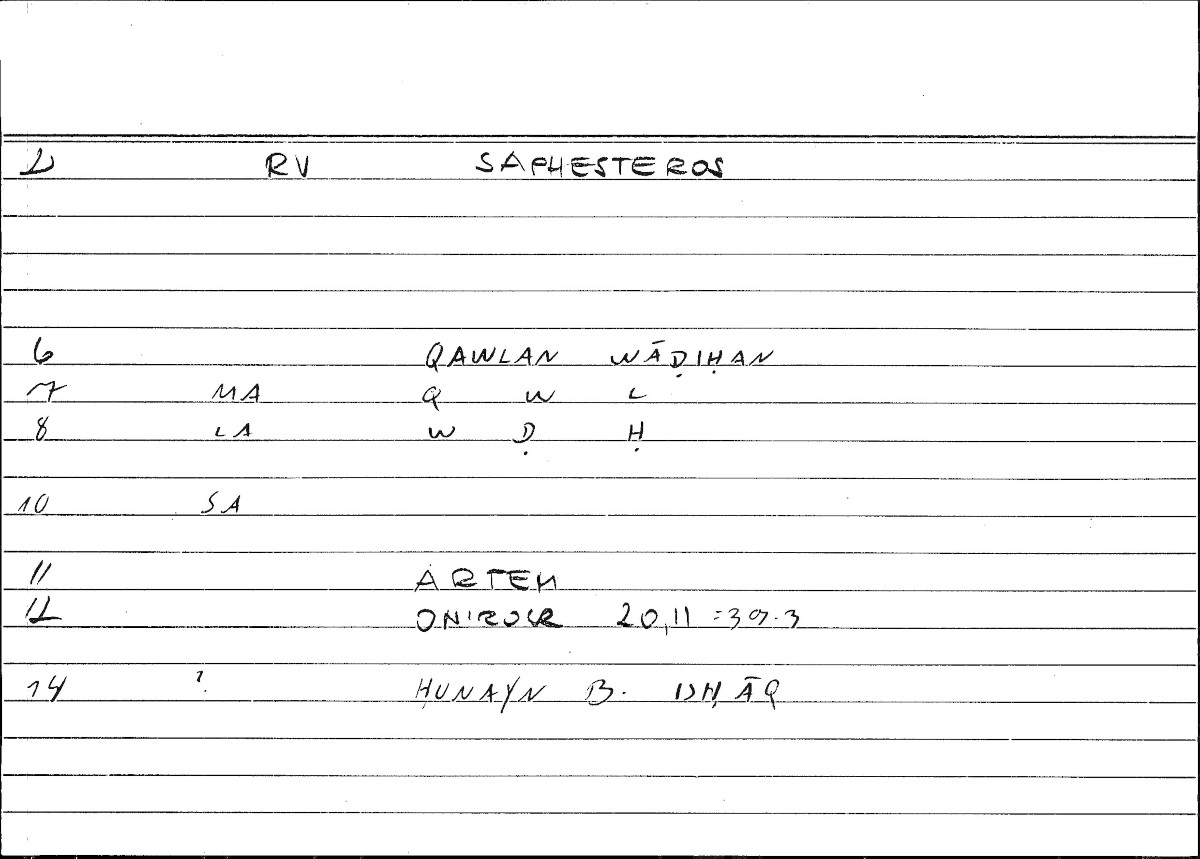 2 RV SAPHESTEROS
6 QAWLAN WĀḌIḤAN
7 MA Q W L
8 LA W Ḍ Ḥ
10 SA
11 ARTEM
12 ONIROCR 20,11 = 39.3
14 ? ḤUNAYN B. ISḤĀQ